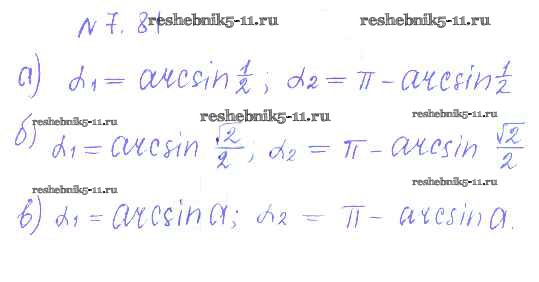 N 7. 81 reshebnik5-11.ru reshebnik5-11.ru
а) α₁ = arcsin 1/2 ; α₂ = π - arcsin 1/2
reshebnik5-11.ru reshebnik5-11.ru reshebnik5-11.ru
б) α₁ = arcsin √2/2 ; α₂ = π - arcsin √2/2
reshebnik5-11.ru reshebnik5-11.ru
в) α₁ = arcsin a; α₂ = π - arcsin a.